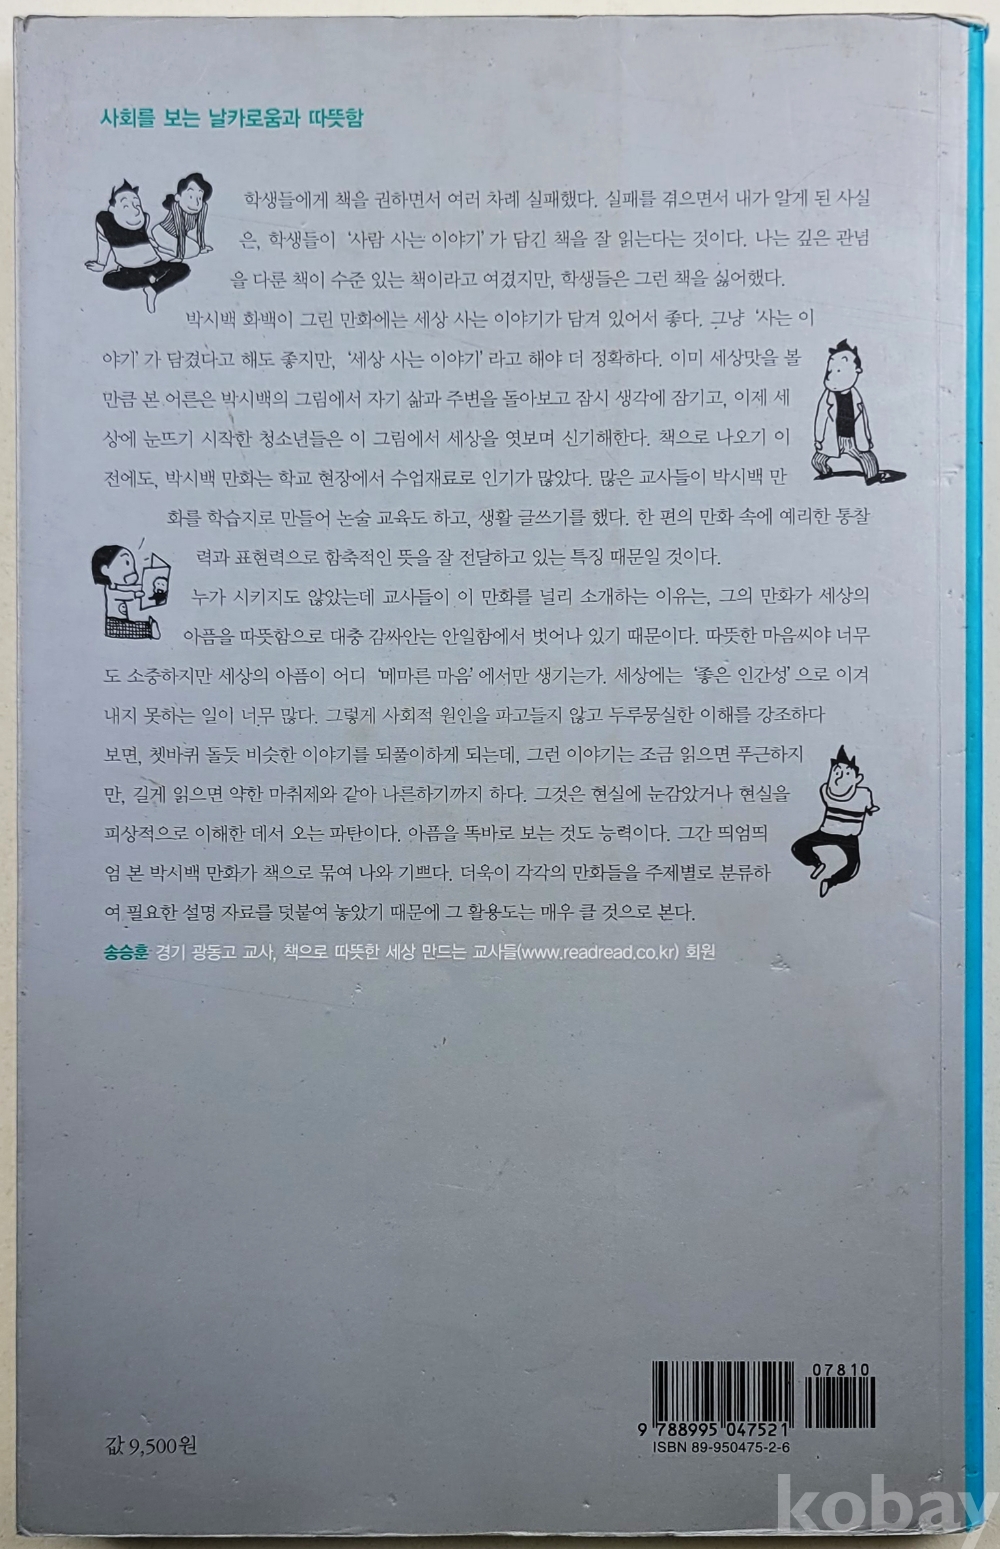 사회를 보는 날카로움과 따뜻함
학생들에게 책을 권하면서 여러 차례 실패했다. 실패를 겪으면서 내가 알게 된 사실
은, 학생들이 '사람 사는 이야기'가 담긴 책을 잘 읽는다는 것이다. 나는 깊은 관념
을 다룬 책이 수준 있는 책이라고 여겼지만, 학생들은 그런 책을 싫어했다.
박시백 화백이 그린 만화에는 세상 사는 이야기가 담겨 있어서 좋다. 그냥 '사는 이
야기'가 담겼다고 해도 좋지만, '세상 사는 이야기'라고 해야 더 정확하다. 이미 세상맛을 볼
만큼 본 어른은 박시백의 그림에서 자기 삶과 주변을 돌아보고 잠시 생각에 잠기고, 이제 세
상에 눈뜨기 시작한 청소년들은 이 그림에서 세상을 엿보며 신기해한다. 책으로 나오기 이
전에도, 박시백 만화는 학교 현장에서 수업재료로 인기가 많았다. 많은 교사들이 박시백 만
화를 학습지로 만들어 논술 교육도 하고, 생활 글쓰기를 했다. 한 편의 만화 속에 예리한 통찰
력과 표현력으로 함축적인 뜻을 잘 전달하고 있는 특징 때문일 것이다.
누가 시키지도 않았는데 교사들이 이 만화를 널리 소개하는 이유는, 그의 만화가 세상의
아픔을 따뜻함으로 대충 감싸안는 안일함에서 벗어나 있기 때문이다. 따뜻한 마음씨야 너무
도 소중하지만 세상의 아픔이 어디 '메마른 마음'에서만 생기는가. 세상에는 '좋은 인간성'으로 이겨
내지 못하는 일이 너무 많다. 그렇게 사회적 원인을 파고들지 않고 두루뭉실한 이해를 강조하다
보면, 쳇바퀴 돌듯 비슷한 이야기를 되풀이하게 되는데, 그런 이야기는 조금 읽으면 푸근하지
만, 길게 읽으면 약한 마취제와 같아 나른하기까지 하다. 그것은 현실에 눈감았거나 현실을
피상적으로 이해한 데서 오는 파탄이다. 아픔을 똑바로 보는 것도 능력이다. 그간 띄엄띄
엄 본 박시백 만화가 책으로 묶여 나와 기쁘다. 더욱이 각각의 만화들을 주제별로 분류하
여 필요한 설명 자료를 덧붙여 놓았기 때문에 그 활용도는 매우 클 것으로 본다.
송승훈 경기 광동고 교사, 책으로 따뜻한 세상 만드는 교사들(www.readread.co.kr) 회원
값 9,500원
07810
9 788995 047521
ISBN 89-950475-2-6
kobay